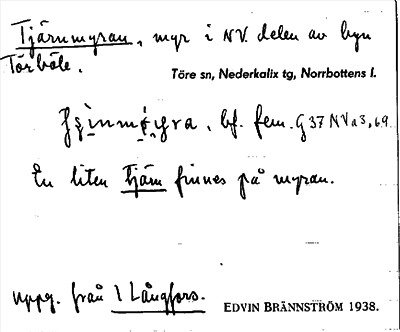 Tjärnmyran, myr i NV. delen av byn
Törböle.
Töre sn, Nederkalix tg, Norrbottens l.
bf. fem. G 37 NV a 3, 69.
En liten tjärn finnes på myran.
uppg. från 1 Långfors.
EDVIN BRÄNNSTRÖM 1938.